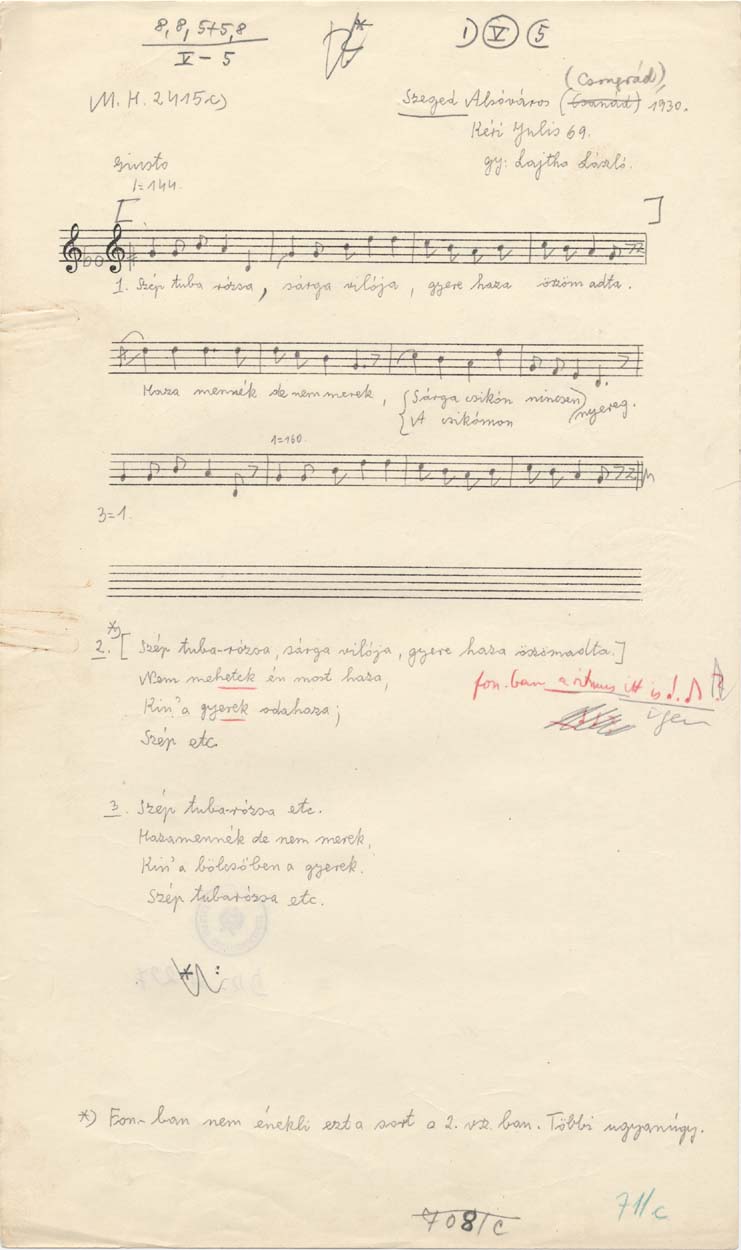 8, 8, 5+5, 8
V - 5
1) V 5
M. H. 2415c)
(Csongrád),
Szeged Alsóváros (Csanád) 1930.
Kéri Julis 69.
gy: Lajtha László.
Giusto
=144.
1. Szép tuba rózsa, sárga vilója, gyere haza öszöm adta.
Haza mennék de nem merek, Sárga csikón nincsen
A csikómon
nyereg.
=160.
3=1.
*)
2. [ Szép tuba-rózsa, sárga vilója, gyere haza öszömadta.]
Nem mehetek én most haza,
fon.-ban a ritmus itt is ?
igen
Kin' a gyerek odahaza;
Szép etc.
3. Szép tuba-rózsa etc.
Hazamennék de nem merek,
Kin' a bölcsőben a gyerek.
Szép tubarózsa etc.
*) Fon-ban nem énekli ezt a sort a 2. vsz. ban. Többi ugyanúgy.
708/c
711/c